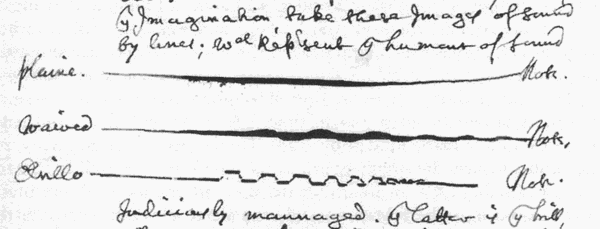 yͤ Imagination take these Images of sound
by lines; wᶜʰ Repˢent yͤ humour of sound
plaine. Note.
Waived Note.
Trillo Note.
Judiciously mannaged. yͤ latter is yͤ trill,